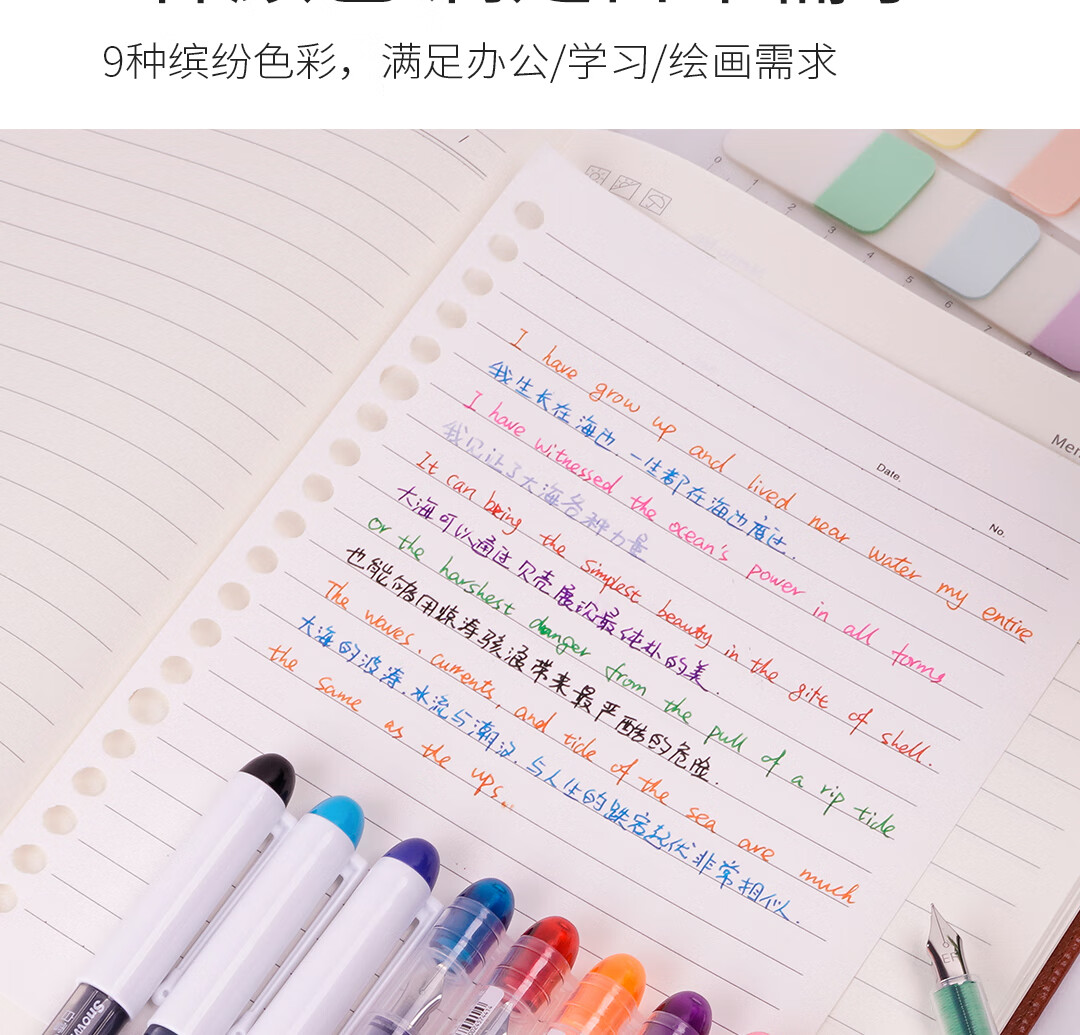 9种缤纷色彩，满足办公/学习/绘画需求
0 1 2 3 4 5 6 7 8
Date.
No.
I have grow up and lived near water my entire
我生长在海边.一生都在海边度过.
I have witnessed the ocean's power in all forms
我见证了大海各种力量
It can bring the simplest beauty in the gift of shell.
大海可以通过贝壳展示最纯朴的美.
or the harshest danger from the pull of a rip tide
也能够用惊涛骇浪带来最严酷的危险.
The waves, currents, and tide of the sea are much
大海的波涛.水流与潮汐.与人生的跌宕起伏非常相似.
the same as the ups.
Snow